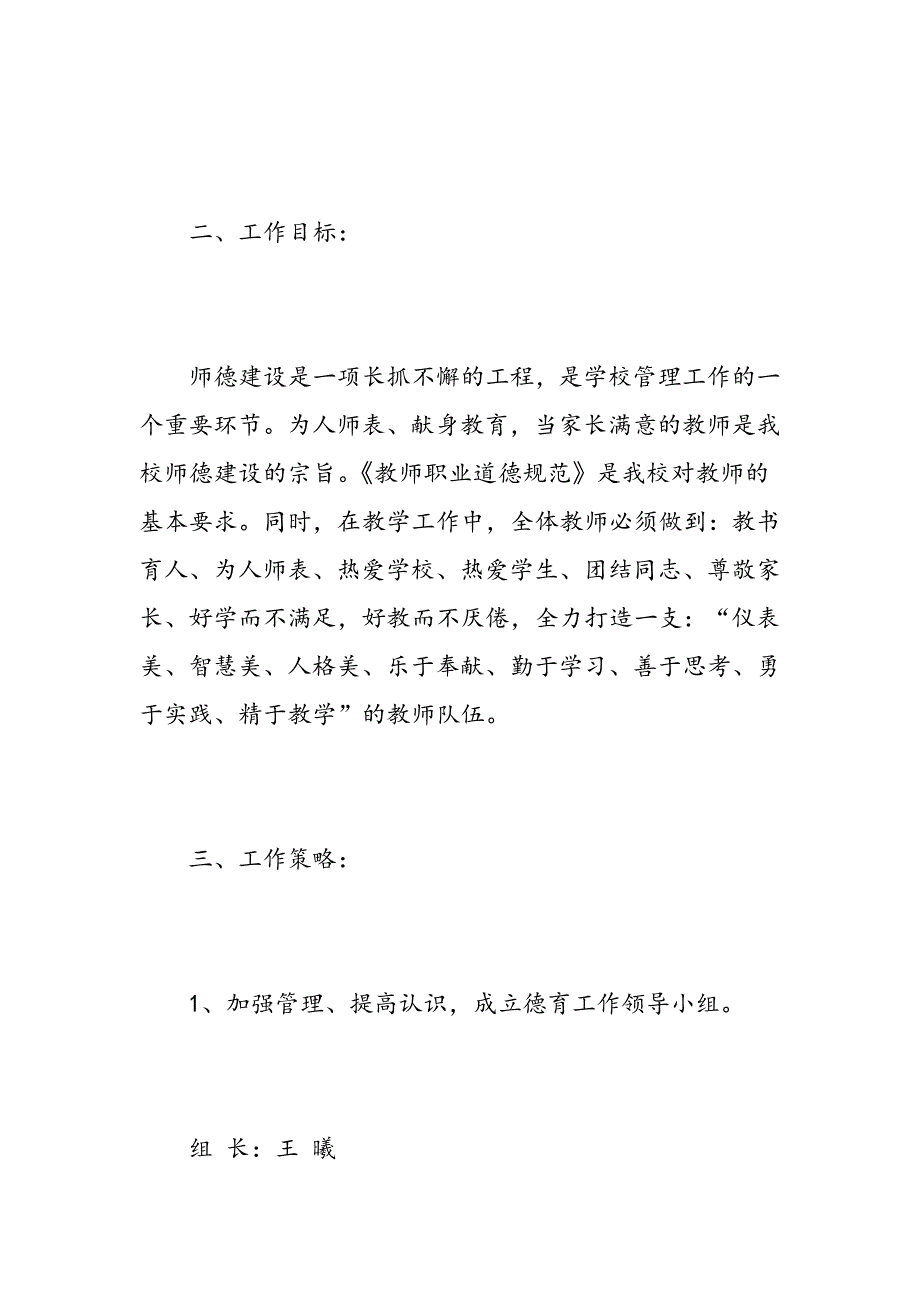 二、工作目标：
师德建设是一项长抓不懈的工程，是学校管理工作的一
个重要环节。为人师表、献身教育，当家长满意的教师是我
校师德建设的宗旨。《教师职业道德规范》是我校对教师的
基本要求。同时，在教学工作中，全体教师必须做到：教书
育人、为人师表、热爱学校、热爱学生、团结同志、尊敬家
长、好学而不满足，好教而不厌倦，全力打造一支：“仪表
美、智慧美、人格美、乐于奉献、勤于学习、善于思考、勇
于实践、精于教学”的教师队伍。
三、工作策略：
1、加强管理、提高认识，成立德育工作领导小组。
组 长：王 曦